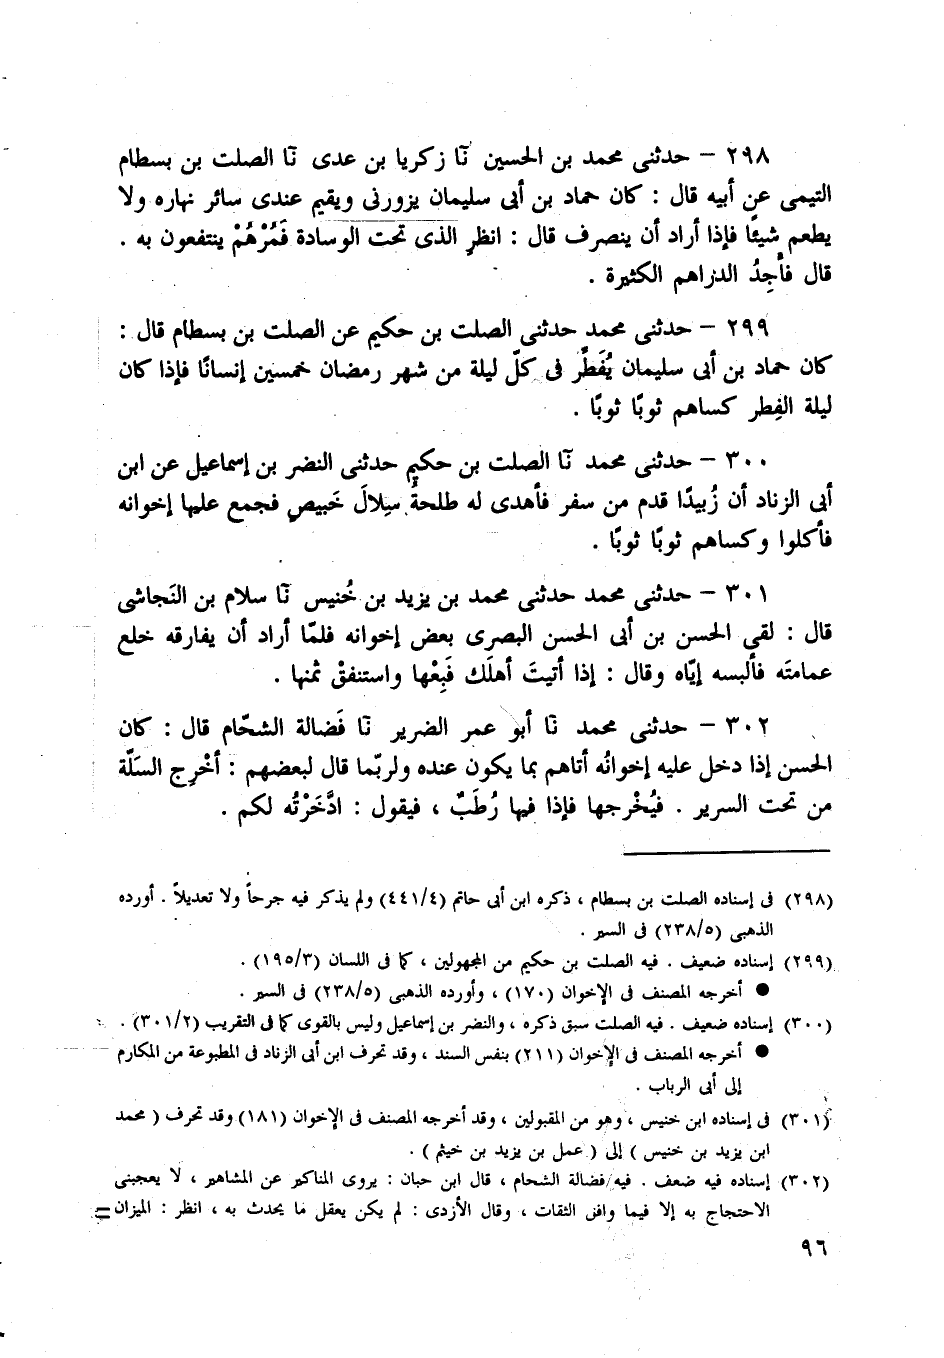 ٢٩٨ – حدثنى محمد بن الحسين نّا زكريا بن عدى نّا الصلت بن بسطام
التيمى عن أبيه قال : كان حماد بن أبى سليمان يزورنى ويقيم عندى سائر نهاره ولا
يطعم شيئًا فإذا أراد أن ينصرف قال : انظر الذى تحت الوسادة فَمُرْهُمْ ينتفعون به .
قال فأَجِدُ الدراهم الكثيرة .
٢٩٩ – حدثنى محمد حدثنى الصلت بن حكيم عن الصلت بن بسطام قال :
كان حماد بن أبى سليمان يُفَطِّر فى كلّ ليلة من شهر رمضان خمسين إنسانًا فإذا كان
ليلة الفِطر كساهم ثوبًا ثوبًا .
٣٠٠ – حدثنى محمد نّا الصلت بن حكيم حدثنى النضر بن إسماعيل عن ابن
أبى الزناد أن زُبيدًا قدم من سفر فأهدى له طلحةُ سِلالَ خَبيصٍ فجمع عليها إخوانه
فأكلوا وكساهم ثوبًا ثوبًا .
٣٠١ – حدثنى محمد حدثنى محمد بن يزيد بن خُنيس نّا سلام بن النَجاشى
قال : لقى الحسن بن أبى الحسن البصرى بعض إخوانه فلمّا أراد أن يفارقه خلع
عمامتَه فألبسه إيّاه وقال : إذا أتيتَ أهلَك فَبِعْها واستنفقْ ثمنها .
٣٠٢ – حدثنى محمد نّا أبو عمر الضرير نّا فَضالة الشحّام قال : كان
الحسن إذا دخل عليه إخوانُه أتاهم بما يكون عنده ولربّما قال لبعضهم : أخْرِج السَلّة
من تحت السرير . فيُخْرجها فإذا فيها رُطَبٌ ، فيقول : ادَّخَرْتُه لكم .
(٢٩٨) فى إسناده الصلت بن بسطام ، ذكره ابن أبى حاتم (٤٤١/٤) ولم يذكر فيه جرحاً ولا تعديلاً . أورده
الذهبى (٢٣٨/٥) فى السير .
(٢٩٩) إسناده ضعيف . فيه الصلت بن حكيم من المجهولين ، كما فى اللسان (١٩٥/٣) .
● أخرجه المصنف فى الإخوان (١٧٠) ، وأورده الذهبى (٢٣٨/٥) فى السير .
(٣٠٠) إسناده ضعيف . فيه الصلت سبق ذكره ، والنضر بن إسماعيل وليس بالقوى كما فى التقريب (٣٠١/٢) .
● أخرجه المصنف فى الإخوان (٢١١) بنفس السند ، وقد تحرف ابن أبى الزناد فى المطبوعة من المكارم
إلى أبى الرباب .
(٣٠١) فى إسناده ابن خنيس ، وهو من المقبولين ، وقد أخرجه المصنف فى الإخوان (١٨١) وقد تحرف ( محمد
ابن يزيد بن خنيس ) إلى ( عمل بن يزيد بن خيثم ) .
(٣٠٢) إسناده فيه ضعف . فيه فضالة الشحام ، قال ابن حبان : يروى المناكير عن المشاهير ، لا يعجبنى
الاحتجاج به إلا فيما وافق الثقات ، وقال الأزدى : لم يكن يعقل ما يحدث به ، انظر : الميزان =
٩٦